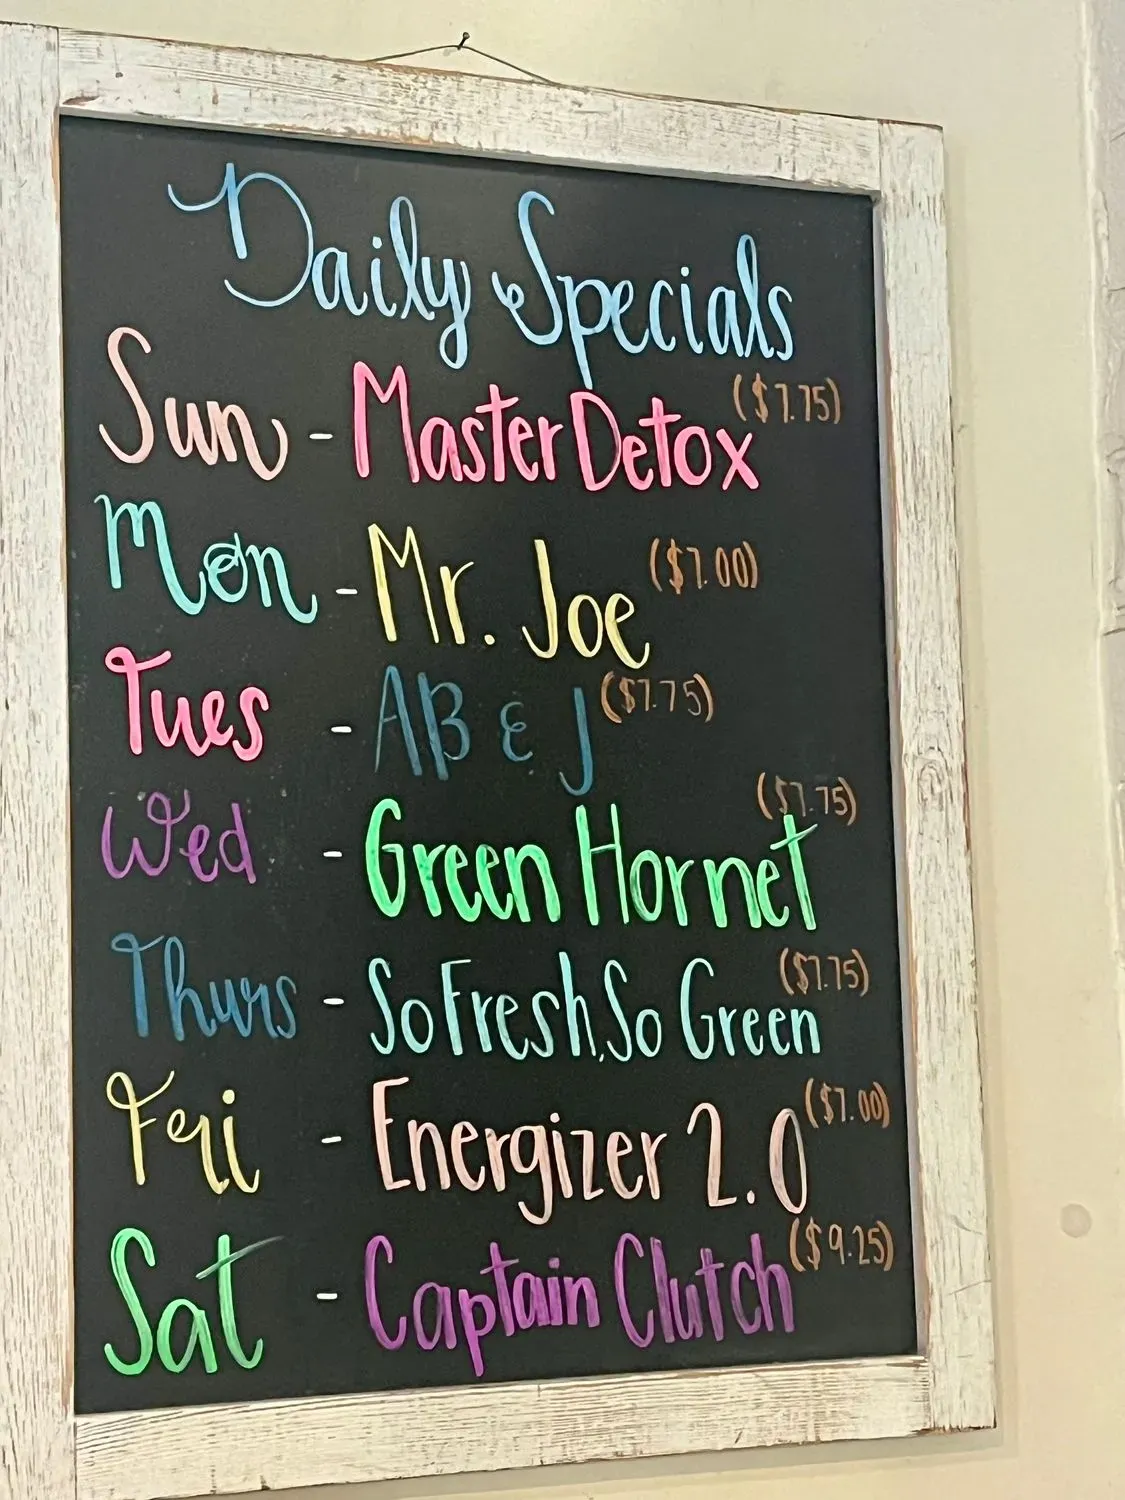 Daily Specials
Sun - Master Detox ($7.75)
Mon - Mr. Joe ($7.00)
Tues - AB & J ($7.75)
Wed - Green Hornet ($7.75)
Thurs - So Fresh, So Green ($7.75)
Fri - Energizer 2.0 ($7.00)
Sat - Captain Clutch ($9.25)